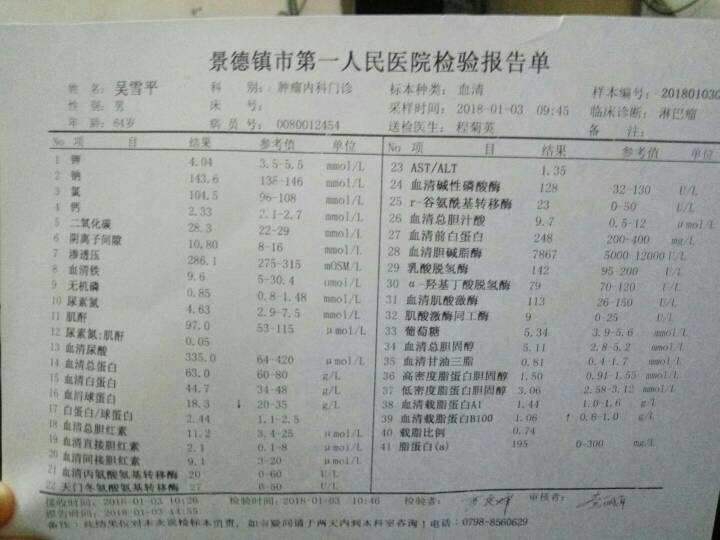 景德镇市第一人民医院检验报告单
姓 名: 吴雪平 科 别: 肿瘤内科门诊 标本种类: 血清 样本编号: 20180103G
性 别: 男 床 号: 采样时间: 2018-01-03 09:45 临床诊断: 淋巴瘤
年 龄: 64岁 病 员 号: 0080012454 送检医生: 程菊英 备 注:
No 项 目 结果 参考值 单位 No 项 目 结果 参考值 单位
1 钾 4.04 3.5-5.5 mmol/L
2 钠 143.6 135-146 mmol/L
3 氯 104.5 96-108 mmol/L
4 钙 2.33 2.1-2.7 mmol/L
5 二氧化碳 28.3 22-29 mmol/L
6 阴离子间隙 10.80 8-16 mmol/L
7 渗透压 286.1 275-315 mOSM/L
8 血清铁 9.6 5-30.4 umol/L
9 无机磷 0.85 0.8-1.48 mmol/L
10 尿素氮 4.63 2.9-7.5 mmol/L
11 肌酐 97.0 53-115 μmol/L
12 尿素氮:肌酐 0.05
13 血清尿酸 335.0 64-420 μmol/L
14 血清总蛋白 63.0 60-80 g/L
15 血清白蛋白 44.7 34-48 g/L
16 血清球蛋白 18.3 ↓ 20-35 g/L
17 白蛋白/球蛋白 2.44 1.1-2.5
18 血清总胆红素 11.2 3.4-25 μmol/L
19 血清直接胆红素 2.1 0.1-8 μmol/L
20 血清间接胆红素 9.1 3-20 μmol/L
21 血清丙氨酸氨基转移酶 20 0-60 U/L
22 天门冬氨酸氨基转移酶 27 0-50 U/L
23 AST/ALT 1.35
24 血清碱性磷酸酶 128 32-130 U/L
25 r-谷氨酰基转移酶 23 0-50 U/L
26 血清总胆汁酸 9.7 0.5-12 μmol/L
27 血清前白蛋白 248 200-400 mg/L
28 血清胆碱脂酶 7867 5000-12000 U/L
29 乳酸脱氢酶 142 95-200 U/L
30 α-羟基丁酸脱氢酶 79 70-120 U/L
31 血清肌酸激酶 113 26-150 U/L
32 肌酸激酶同工酶 9 0-25 U/L
33 葡萄糖 5.34 3.9-5.6 mmol/L
34 血清总胆固醇 5.11 2.8-5.2 mmol/L
35 血清甘油三脂 0.81 0.4-1.7 mmol/L
36 高密度脂蛋白胆固醇 1.50 0.91-1.55 mmol/L
37 低密度脂蛋白胆固醇 3.06 2.58-3.12 mmol/L
38 血清载脂蛋白A1 1.44 1.0-1.6 g/L
39 血清载脂蛋白B100 1.06 ↑ 0.6-1.0 g/L
40 载脂比例 0.74
41 脂蛋白(a) 195 0-300 mg/L
接收时间: 2018-01-03 10:26 检验时间: 2018-01-03 10:46 检验者: 审核者:
报告时间: 2018-01-03 14:55
备注: 此结果仅对本次送检标本负责,如有疑问请于两天内到本科室咨询!电话: 0798-8560629